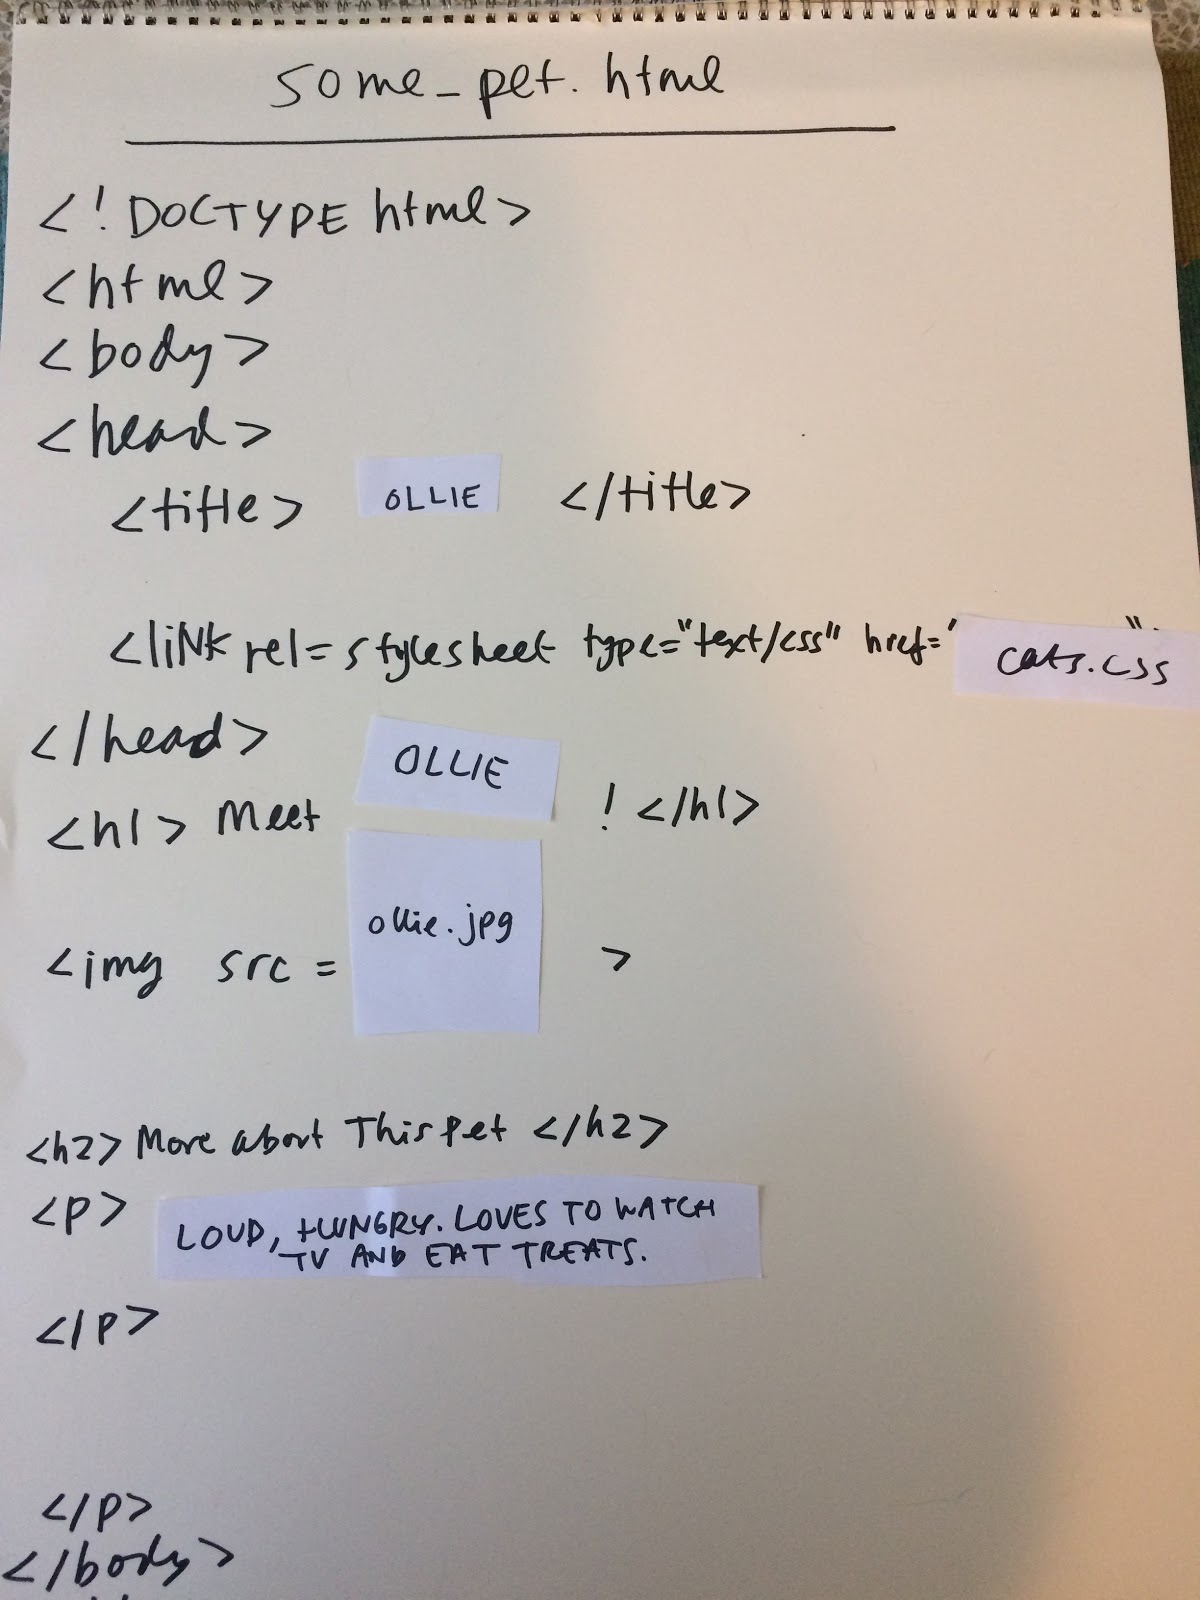 some_pet.html
<!DOCTYPE html>
<html>
<body>
<head>
<title> OLLIE </title>
<link rel=stylesheet type="text/css" href="cats.css"
</head>
<h1> Meet OLLIE ! </h1>
<img src = ollie.jpg >
<h2> More about This Pet </h2>
<p> LOUD, HUNGRY. LOVES TO WATCH
TV AND EAT TREATS.
</p>
</p>
</body>